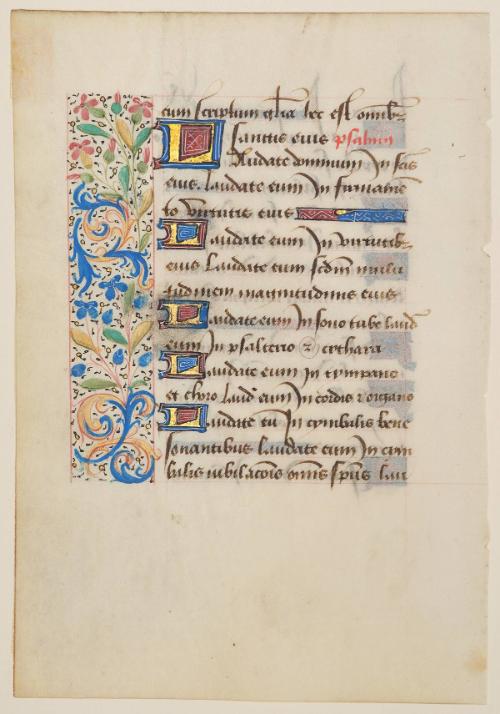 tum scriptum gl̄ia hec est om̄ib
Sanctis eius psalmus
Laudate dominum In scīs
eius. laudate eum In firmamē
to virtutis eius
Laudate eum In virtutib
eius laudate eum scd̄m multi
tudinem magnitudinis eius
Laudate eum In sono tube laud
eum In psalterio ⁊ cythara
Laudate eum In tympano
et choro laud eum In cordis ⁊ organo
Laudate eū In cymbalis bene
sonantibus laudate eum In cym
balis iubilac̄ois om̄is sp̄us lau